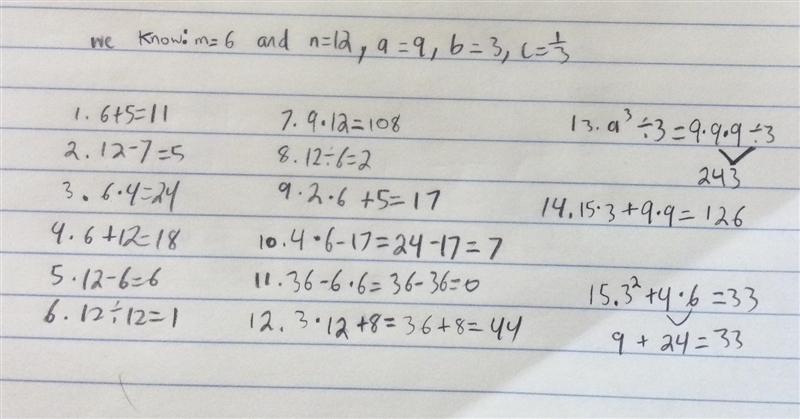 we know: m=6 and n=12, a=9, b=3, c=1/3
1. 6+5=11
2. 12-7=5
3. 6·4=24
4. 6+12=18
5. 12-6=6
6. 12÷12=1
7. 9·12=108
8. 12÷6=2
9. 2·6 +5=17
10. 4·6-17=24-17=7
11. 36-6·6=36-36=0
12. 3·12+8=36+8=44
13. a³÷3=9·9·9÷3
243
14. 15·3+9·9=126
15. 3²+4·6=33
9+24=33